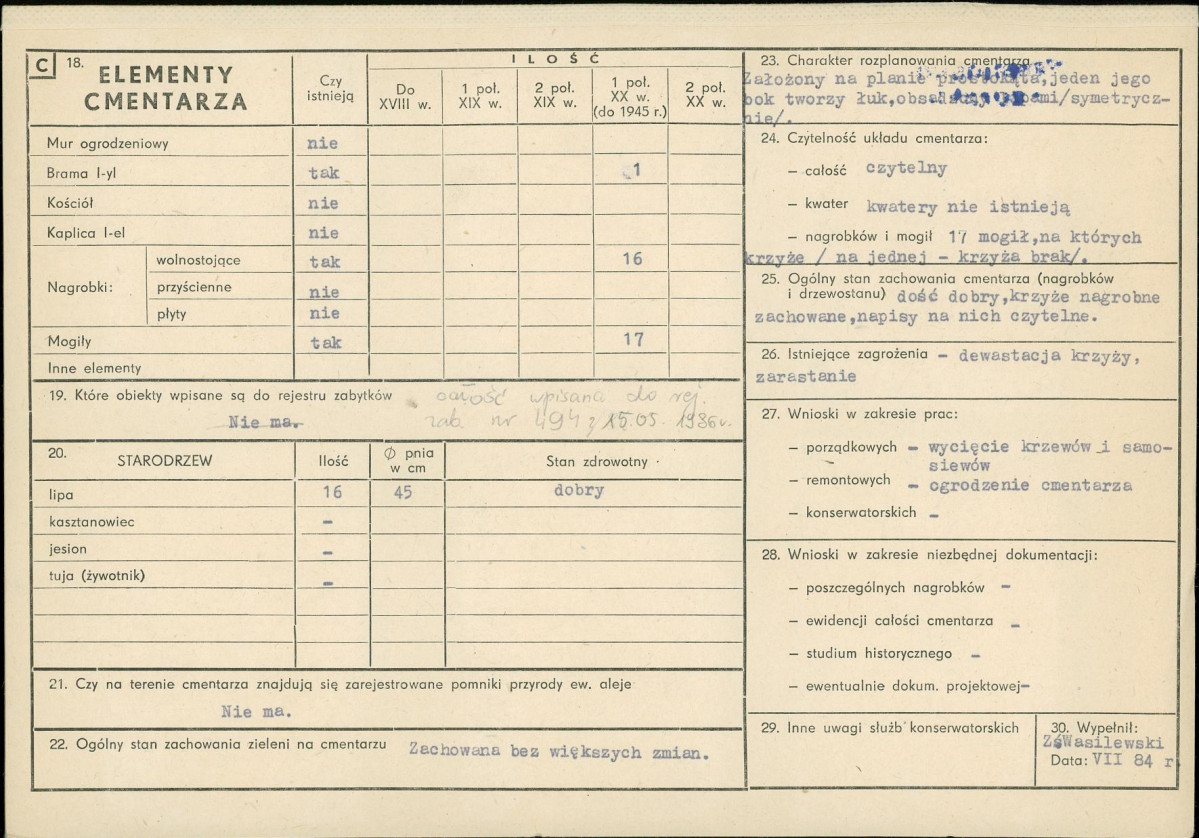 C 18. ELEMENTY CMENTARZA
Czy istnieją
ILOŚĆ
Do XVIII w.
1 poł. XIX w.
2 poł. XIX w.
1 poł. XX w. (do 1945 r.)
2 poł. XX w.
Mur ogrodzeniowy nie
Brama I-yl tak 1
Kościół nie
Kaplica I-el nie
Nagrobki: wolnostojące tak 16
przyścienne nie
płyty nie
Mogiły tak 17
Inne elementy
19. Które obiekty wpisane są do rejestru zabytków całość wpisana do rej.
Nie ma. zab. nr 494 z 15.05. 1986r.
20. STARODRZEW Ilość Ø pnia w cm Stan zdrowotny
lipa 16 45 dobry
kasztanowiec –
jesion –
tuja (żywotnik) –
21. Czy na terenie cmentarza znajdują się zarejestrowane pomniki przyrody ew. aleje
Nie ma.
22. Ogólny stan zachowania zieleni na cmentarzu Zachowana bez większych zmian.
23. Charakter rozplanowania cmentarza
Założony na planie prostokąta,jeden jego
bok tworzy łuk, /symetrycz-
nie/.
24. Czytelność układu cmentarza:
– całość czytelny
– kwater kwatery nie istnieją
– nagrobków i mogił 17 mogił,na których
krzyże / na jednej – krzyża brak/.
25. Ogólny stan zachowania cmentarza (nagrobków
i drzewostanu) dość dobry,krzyże nagrobne
zachowane,napisy na nich czytelne.
26. Istniejące zagrożenia – dewastacja krzyży,
zarastanie
27. Wnioski w zakresie prac:
– porządkowych – wycięcie krzewów i samo-
siewów
– remontowych – ogrodzenie cmentarza
– konserwatorskich –
28. Wnioski w zakresie niezbędnej dokumentacji:
– poszczególnych nagrobków –
– ewidencji całości cmentarza –
– studium historycznego –
– ewentualnie dokum. projektowej–
29. Inne uwagi służb konserwatorskich
30. Wypełnił:
Wasilewski
Data: VII 84 r